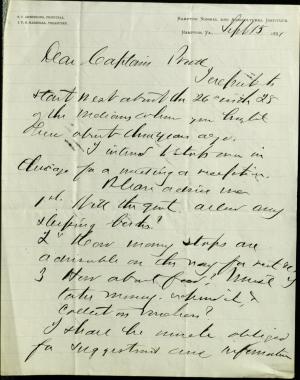 S. C. ARMSTRONG, PRINCIPAL.
J. F. B. MARSHALL, TREASURER.
HAMPTON NORMAL AND AGRICULTURAL INSTITUTE,
HAMPTON, VA., Sept 15 1881
Dear Captain Pratt
I expect to
start West about the 26 with 25
of the Indians whom you brought
here about three years ago.
I intend to stop over in
Chicago for a meeting & reception.
Please advise me
1st. Will the govt. allow any
sleeping berths?
2d How many stops are
advisable on the way for rest &c
3 How about food? Must I
take money, &
collect on vouchers?
I shall be much obliged
for suggestions and information